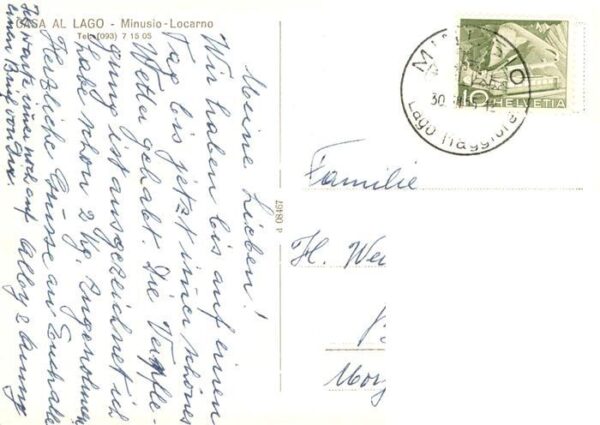 CASA AL LAGO - Minusio-Locarno
Tel. (093) 7 15 05
Meine Lieben!
Wir haben bis auf einen
Tag bis jetzt imer schönes
Wetter gehabt. Die Verpfle-
gung ist ausgezeichnet ich
habe schon 2 Kg. Zugenohmen
Herzliche Grüsse an Euch alle
Alby & Anny
Ich warte imer noch auf
einen Brief von Eux.
d 08467
MINUSIO
30
Lago Maggiore
10 HELVETIA
Familie
H. We